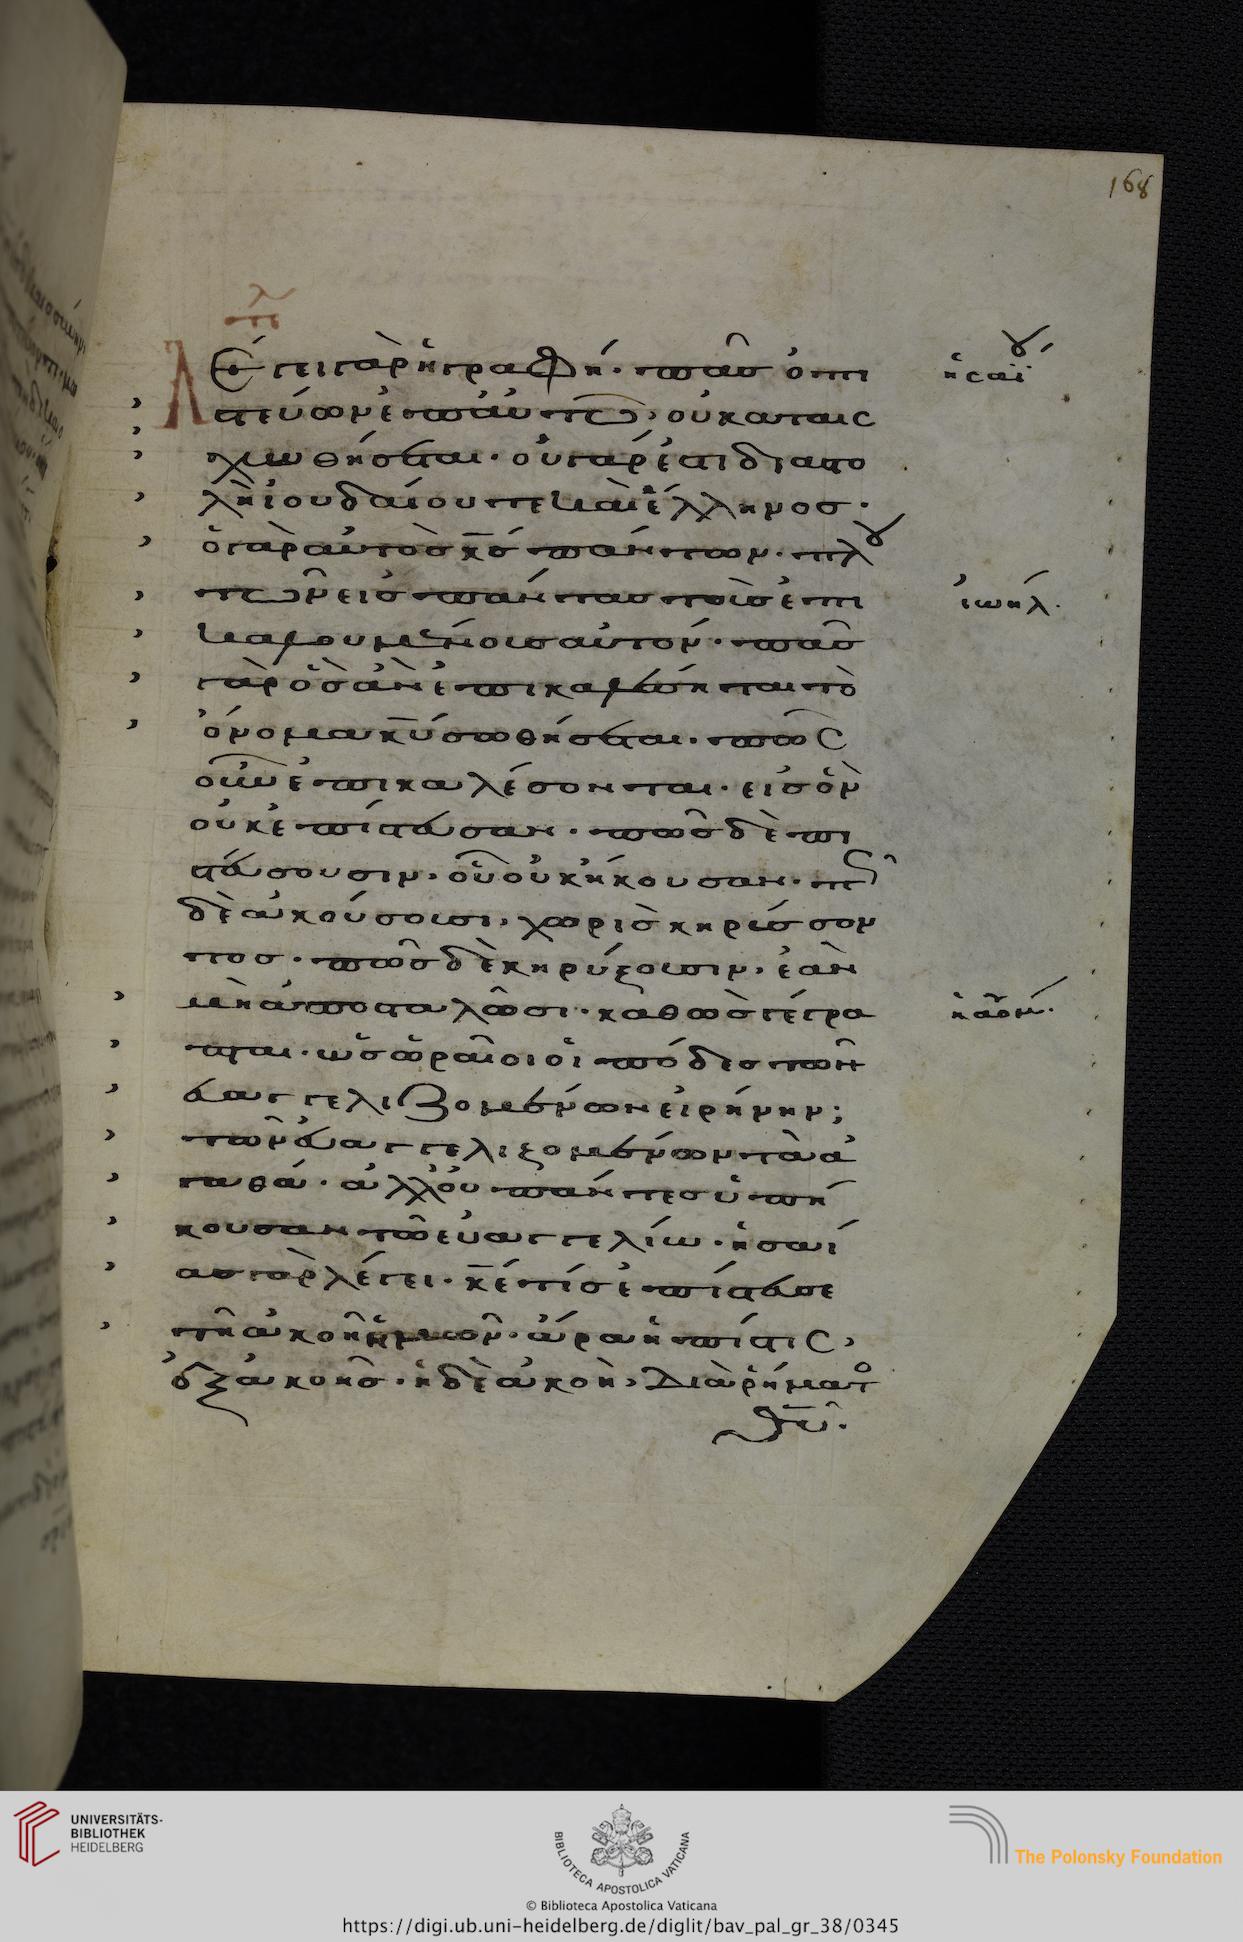 168
Λέγει γὰρ ἡ γραφή· πᾶσ ὁ πι
στεύων ἐπ αὐτῶ, οὐ καταισ
χυνθήσεται· οὐ γάρ ἐστι διαστο
λὴ ἰουδαίου τε καὶ ἕλληνοσ·
ὁ γὰρ αὐτὸσ κ̅σ̅ πάντων· πλου
τῶν εἰσ πάντασ τοὺσ ἐπι
καλουμένουσ αὐτόν· πᾶσ
γὰρ ὃσ ἂν ἐπικαλέσηται τὸ
ὄνομα κ̅υ̅ σωθήσεται· πῶσ
οὖν ἐπικαλέσονται· εἰσ ὃν
οὐκ ἐπίστευσαν· πῶσ δὲ πι
στεύσουσιν· οὗ οὐκ ἤκουσαν· πῶσ
δὲ ἀκούσουσι, χωρὶσ κηρύσσον
τοσ· πῶσ δὲ κηρύξουσιν, ἐὰν
μὴ ἀποσταλῶσι· καθὼσ γέγρα
πται· ὡσ ὡραῖοι οἱ πόδεσ τῶν
εὐαγγελιζομένων εἰρήνην;
τῶν εὐαγγελιζομένων τὰ ἀ
γαθά· ἀλλ οὐ πάντεσ ὑπή
κουσαν τῶ εὐαγγελίω· ἡσαί
ασ γὰρ λέγει· κ̅ε̅ τίσ ἐπίστευσε
τῆ ἀκοῆ ἡμῶν· ἄρα ἡ πίστισ,
ἐξ ἀκοῆσ· ἡ δὲ ἀκοὴ, διὰ ῥήματο
θ̅υ̅·
ἡσαΐου
ἰωήλ·
ναούμ·
UNIVERSITÄTS-
BIBLIOTHEK
HEIDELBERG
BIBLIOTECA APOSTOLICA VATICANA
The Polonsky Foundation
© Biblioteca Apostolica Vaticana
https://digi.ub.uni-heidelberg.de/diglit/bav_pal_gr_38/0345